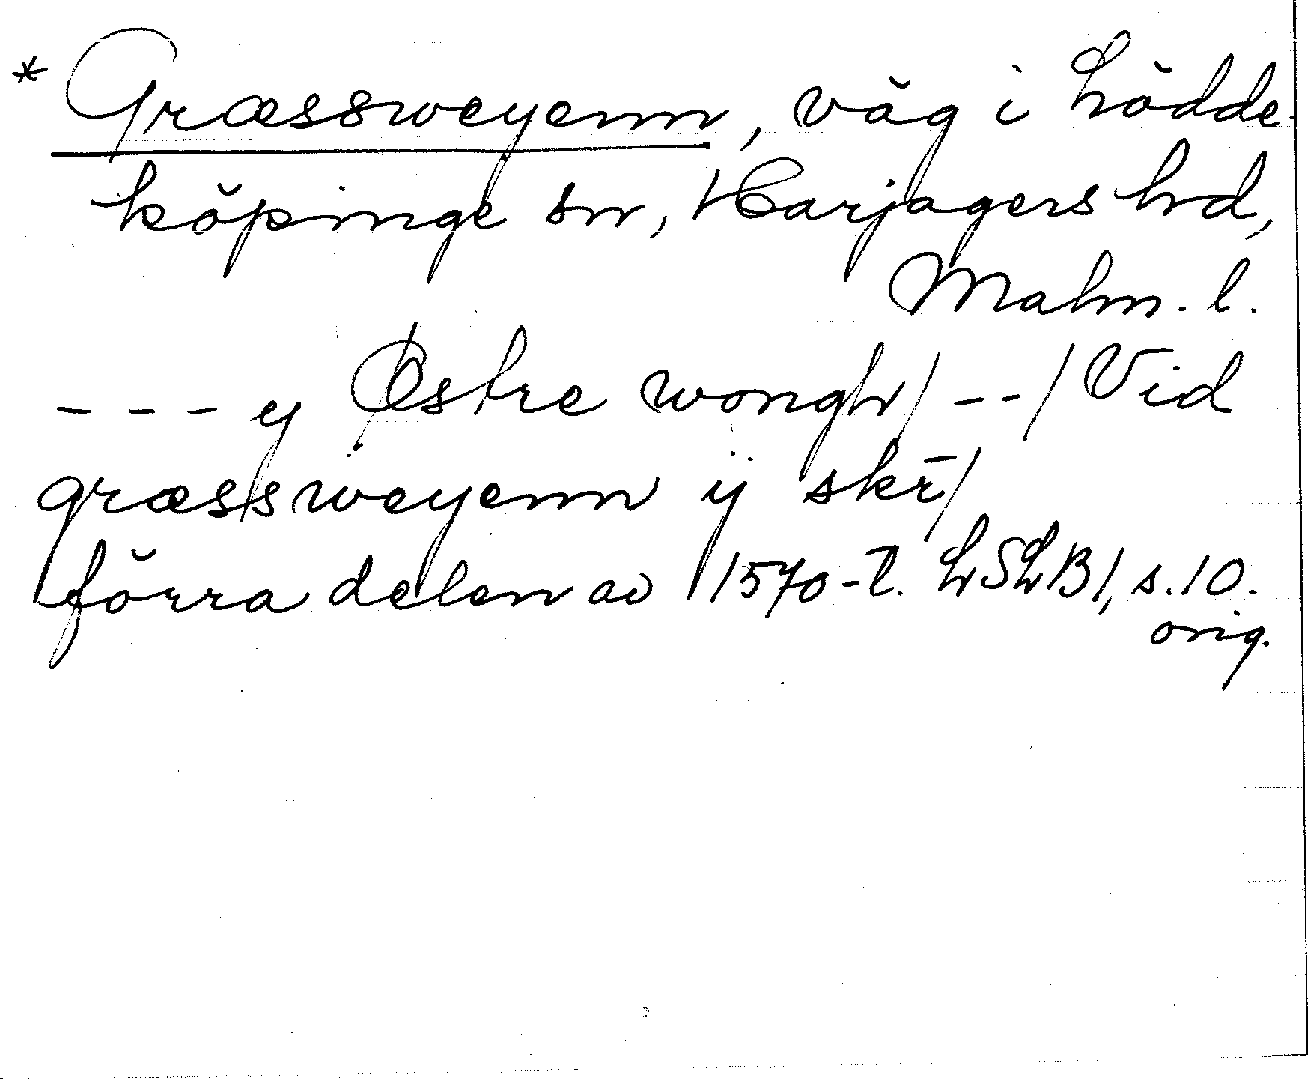 * Græssweyenn, väg i Lödde-
köpinge sn, Harjagers hd,
Malm. l.
- - - y Østre wongh/ - - / Vid
græssweyenn ÿ skr̄/
förra delen av 1570-t. LSLB1, s. 10.
orig.